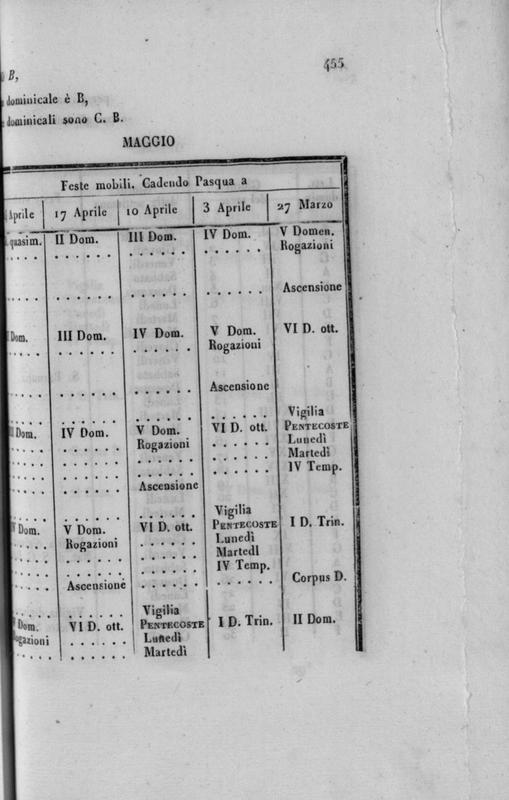 455
B,
dominicale è B,
dominicali sono C. B.
MAGGIO
Feste mobili. Cadendo Pasqua a
Aprile | 17 Aprile | 10 Aprile | 3 Aprile | 27 Marzo
quasim. II Dom. III Dom. IV Dom. V Domen.
. . . . . . . . . . . . . . . . . . . . . . Rogazioni
. . . . . . . . . . . . . . . . . . . . . . Ascensione
Dom. III Dom. IV Dom. V Dom. VI D. ott.
. . . . . . . . . . . . . . . . Rogazioni
. . . . . . . . . . . . . . . . Ascensione
. . . . . . . . . . . . . . . . . . Vigilia
Dom. IV Dom. V Dom. VI D. ott. PENTECOSTE
. . . . . . . . . . Rogazioni . . . . . . Lunedì
. . . . . . . . . . . . . . . . . . . . . . Martedì
. . . . . . . . . . . . . . . . . . . . . . IV Temp.
. . . . . . . . . . Ascensione
. . . . . . . . . . . . . . . . Vigilia
Dom. V Dom. VI D. ott. PENTECOSTE I D. Trin.
. . . . . Rogazioni . . . . . . Lunedì
. . . . . . . . . . . . . . . . Martedì
. . . . . . . . . . . . . . . . IV Temp.
. . . . . Ascensione . . . . . . . . . . . . Corpus D.
. . . . . . . . . . Vigilia
Dom. VI D. ott. PENTECOSTE I D. Trin. II Dom.
ogazioni . . . . . . Lunedì
. . . . . . . . . . . Martedì